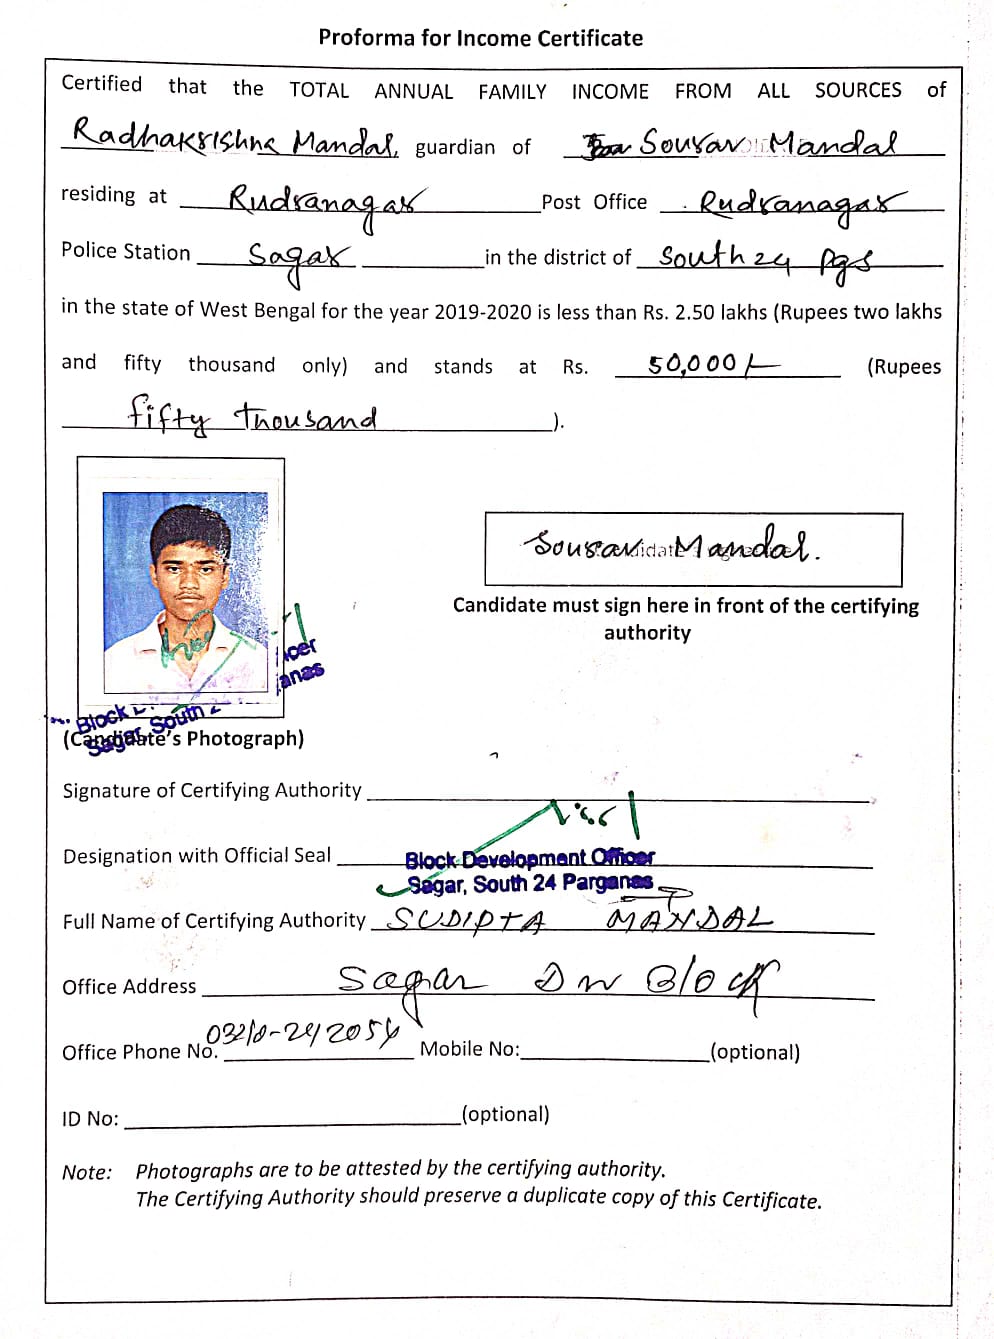 Proforma for Income Certificate
Certified that the TOTAL ANNUAL FAMILY INCOME FROM ALL SOURCES of
Radhakrishna Mandal, guardian of Sourav Mandal
residing at Rudranagar Post Office Rudranagar
Police Station Sagar in the district of South 24 Pgs
in the state of West Bengal for the year 2019-2020 is less than Rs. 2.50 lakhs (Rupees two lakhs
and fifty thousand only) and stands at Rs. 50,000/- (Rupees
fifty thousand ).
Sourav Mandal.
Candidate must sign here in front of the certifying
authority
Block
Sagar, South 2
(Candidate's Photograph)
Signature of Certifying Authority
Designation with Official Seal Block Development Officer
Sagar, South 24 Parganas
Full Name of Certifying Authority SUDIPTA MANDAL
Office Address Sagar Block
Office Phone No. 03210-242054 Mobile No: (optional)
ID No: (optional)
Note: Photographs are to be attested by the certifying authority.
The Certifying Authority should preserve a duplicate copy of this Certificate.